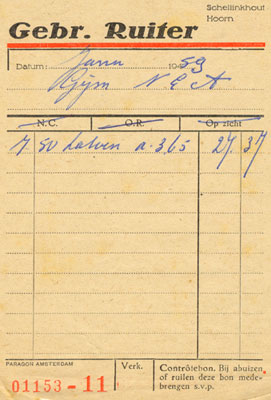 Schellinkhout
Hoorn
Gebr. Ruiter
Datum: Janu 1959
N.C. O.R. Op zicht
7 50 a 3,65 27,37
PARAGON AMSTERDAM
01153-11
Verk.
Contrôlebon. Bij abuizen
of ruilen deze bon mede-
brengen s.v.p.